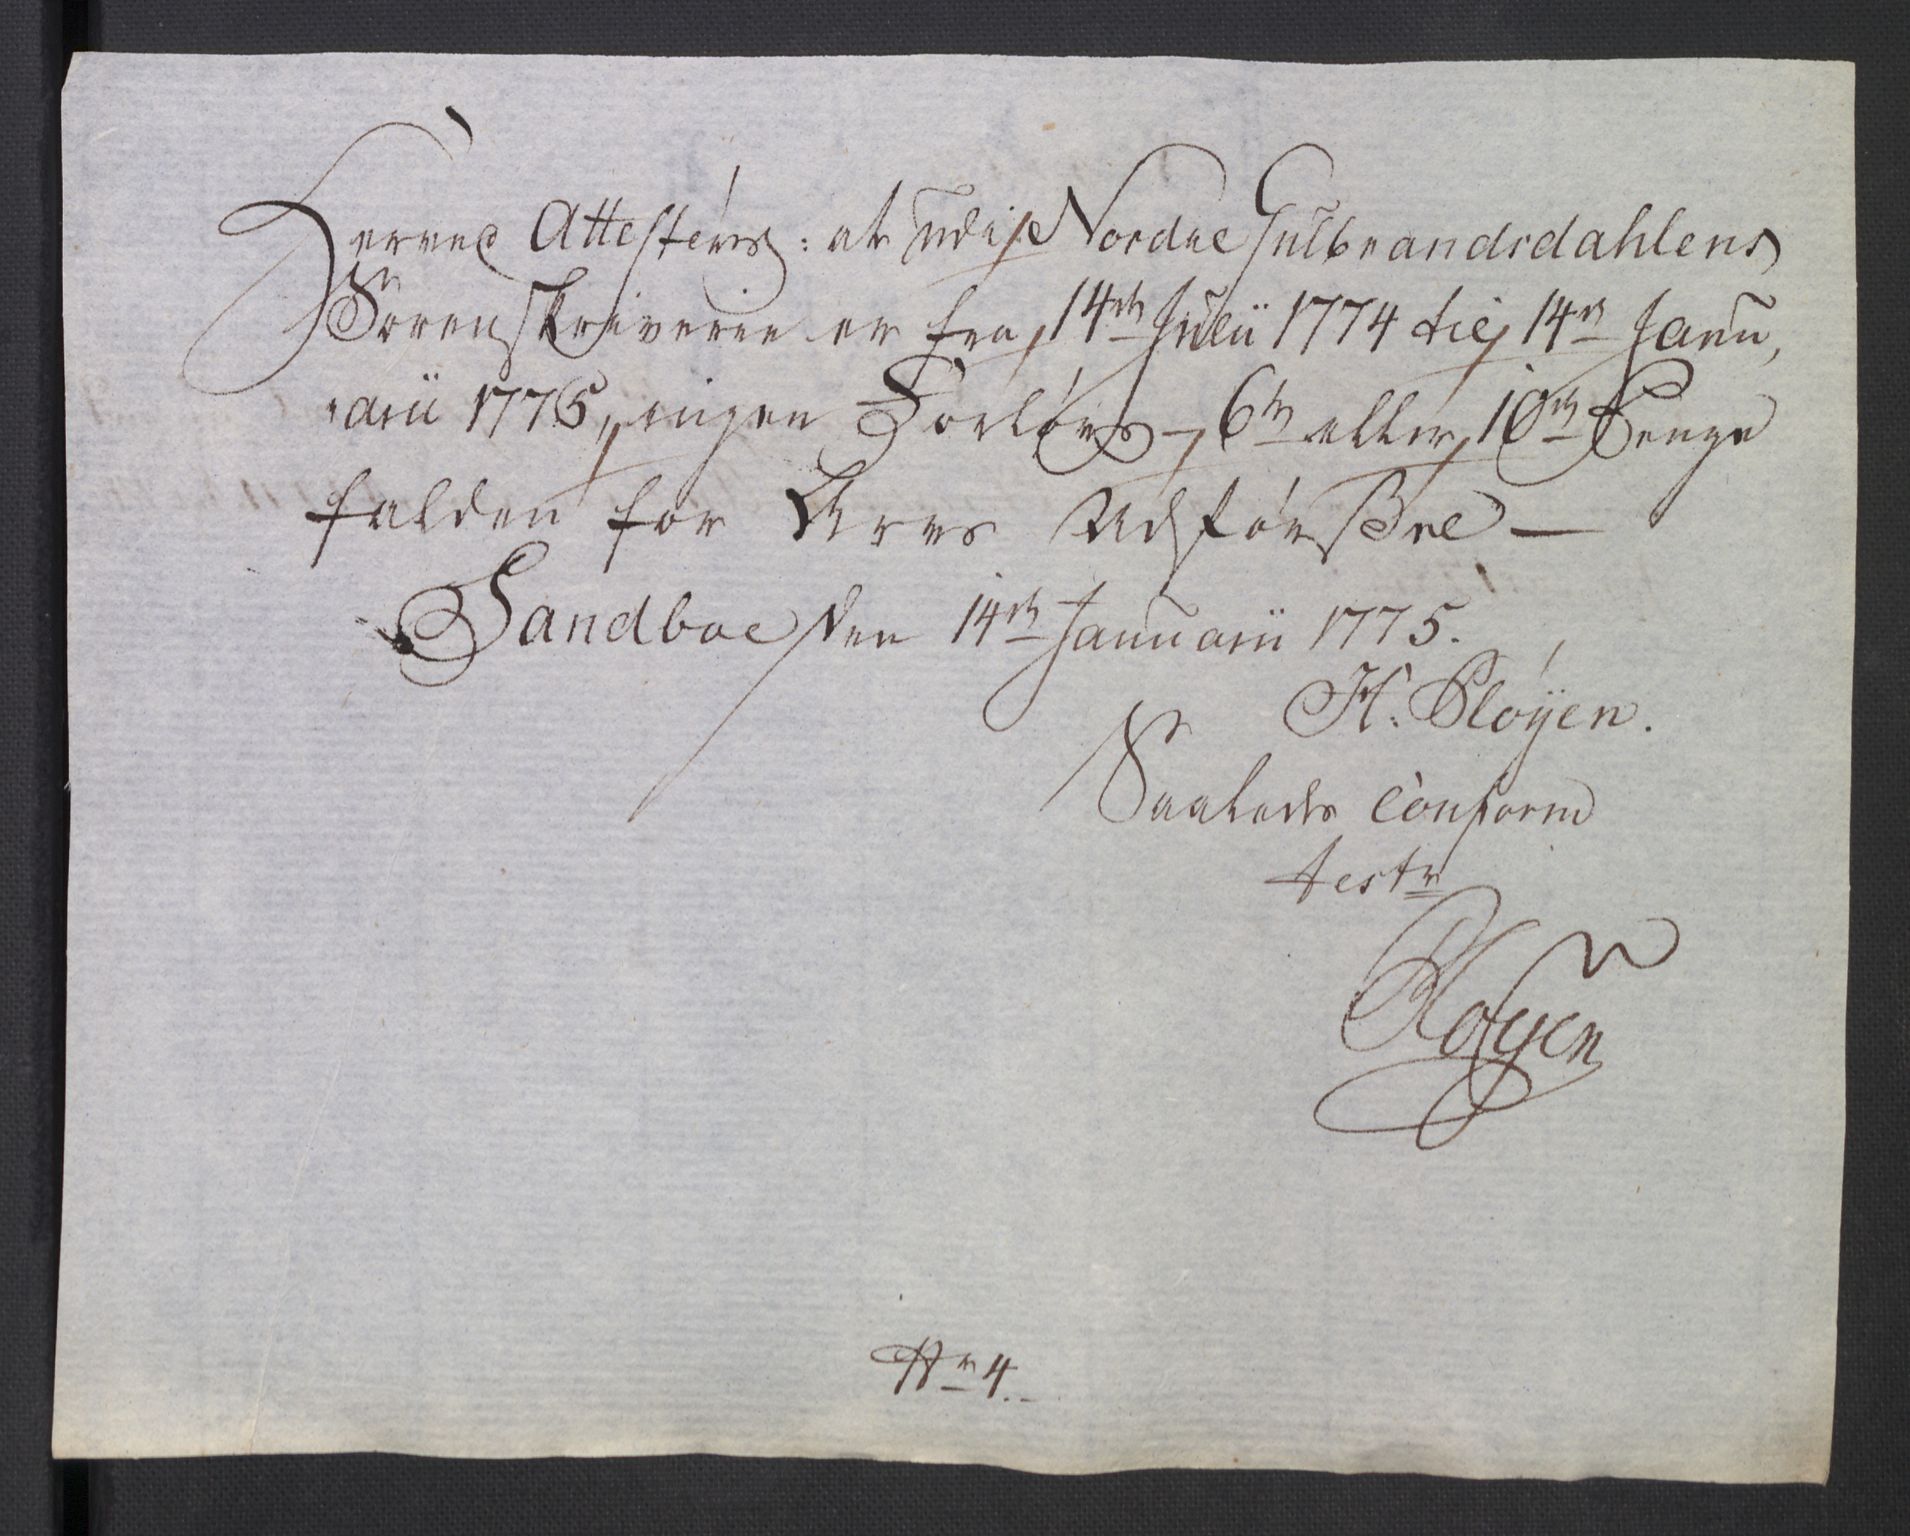 Herved Attesteres: at udi Nordre Gulbrandsdahlens
Sorenskriverie er fra 14de Julii 1774 til 14de Janu,
arii 1775, ingen Forlovs- 6te eller 10de Penge
falden for Arvs Udførsel —
Sandboe den 14de Januarii 1775.
H. Pløyen.
Saaledes Conform
test:
Pløyen
Nr 4.